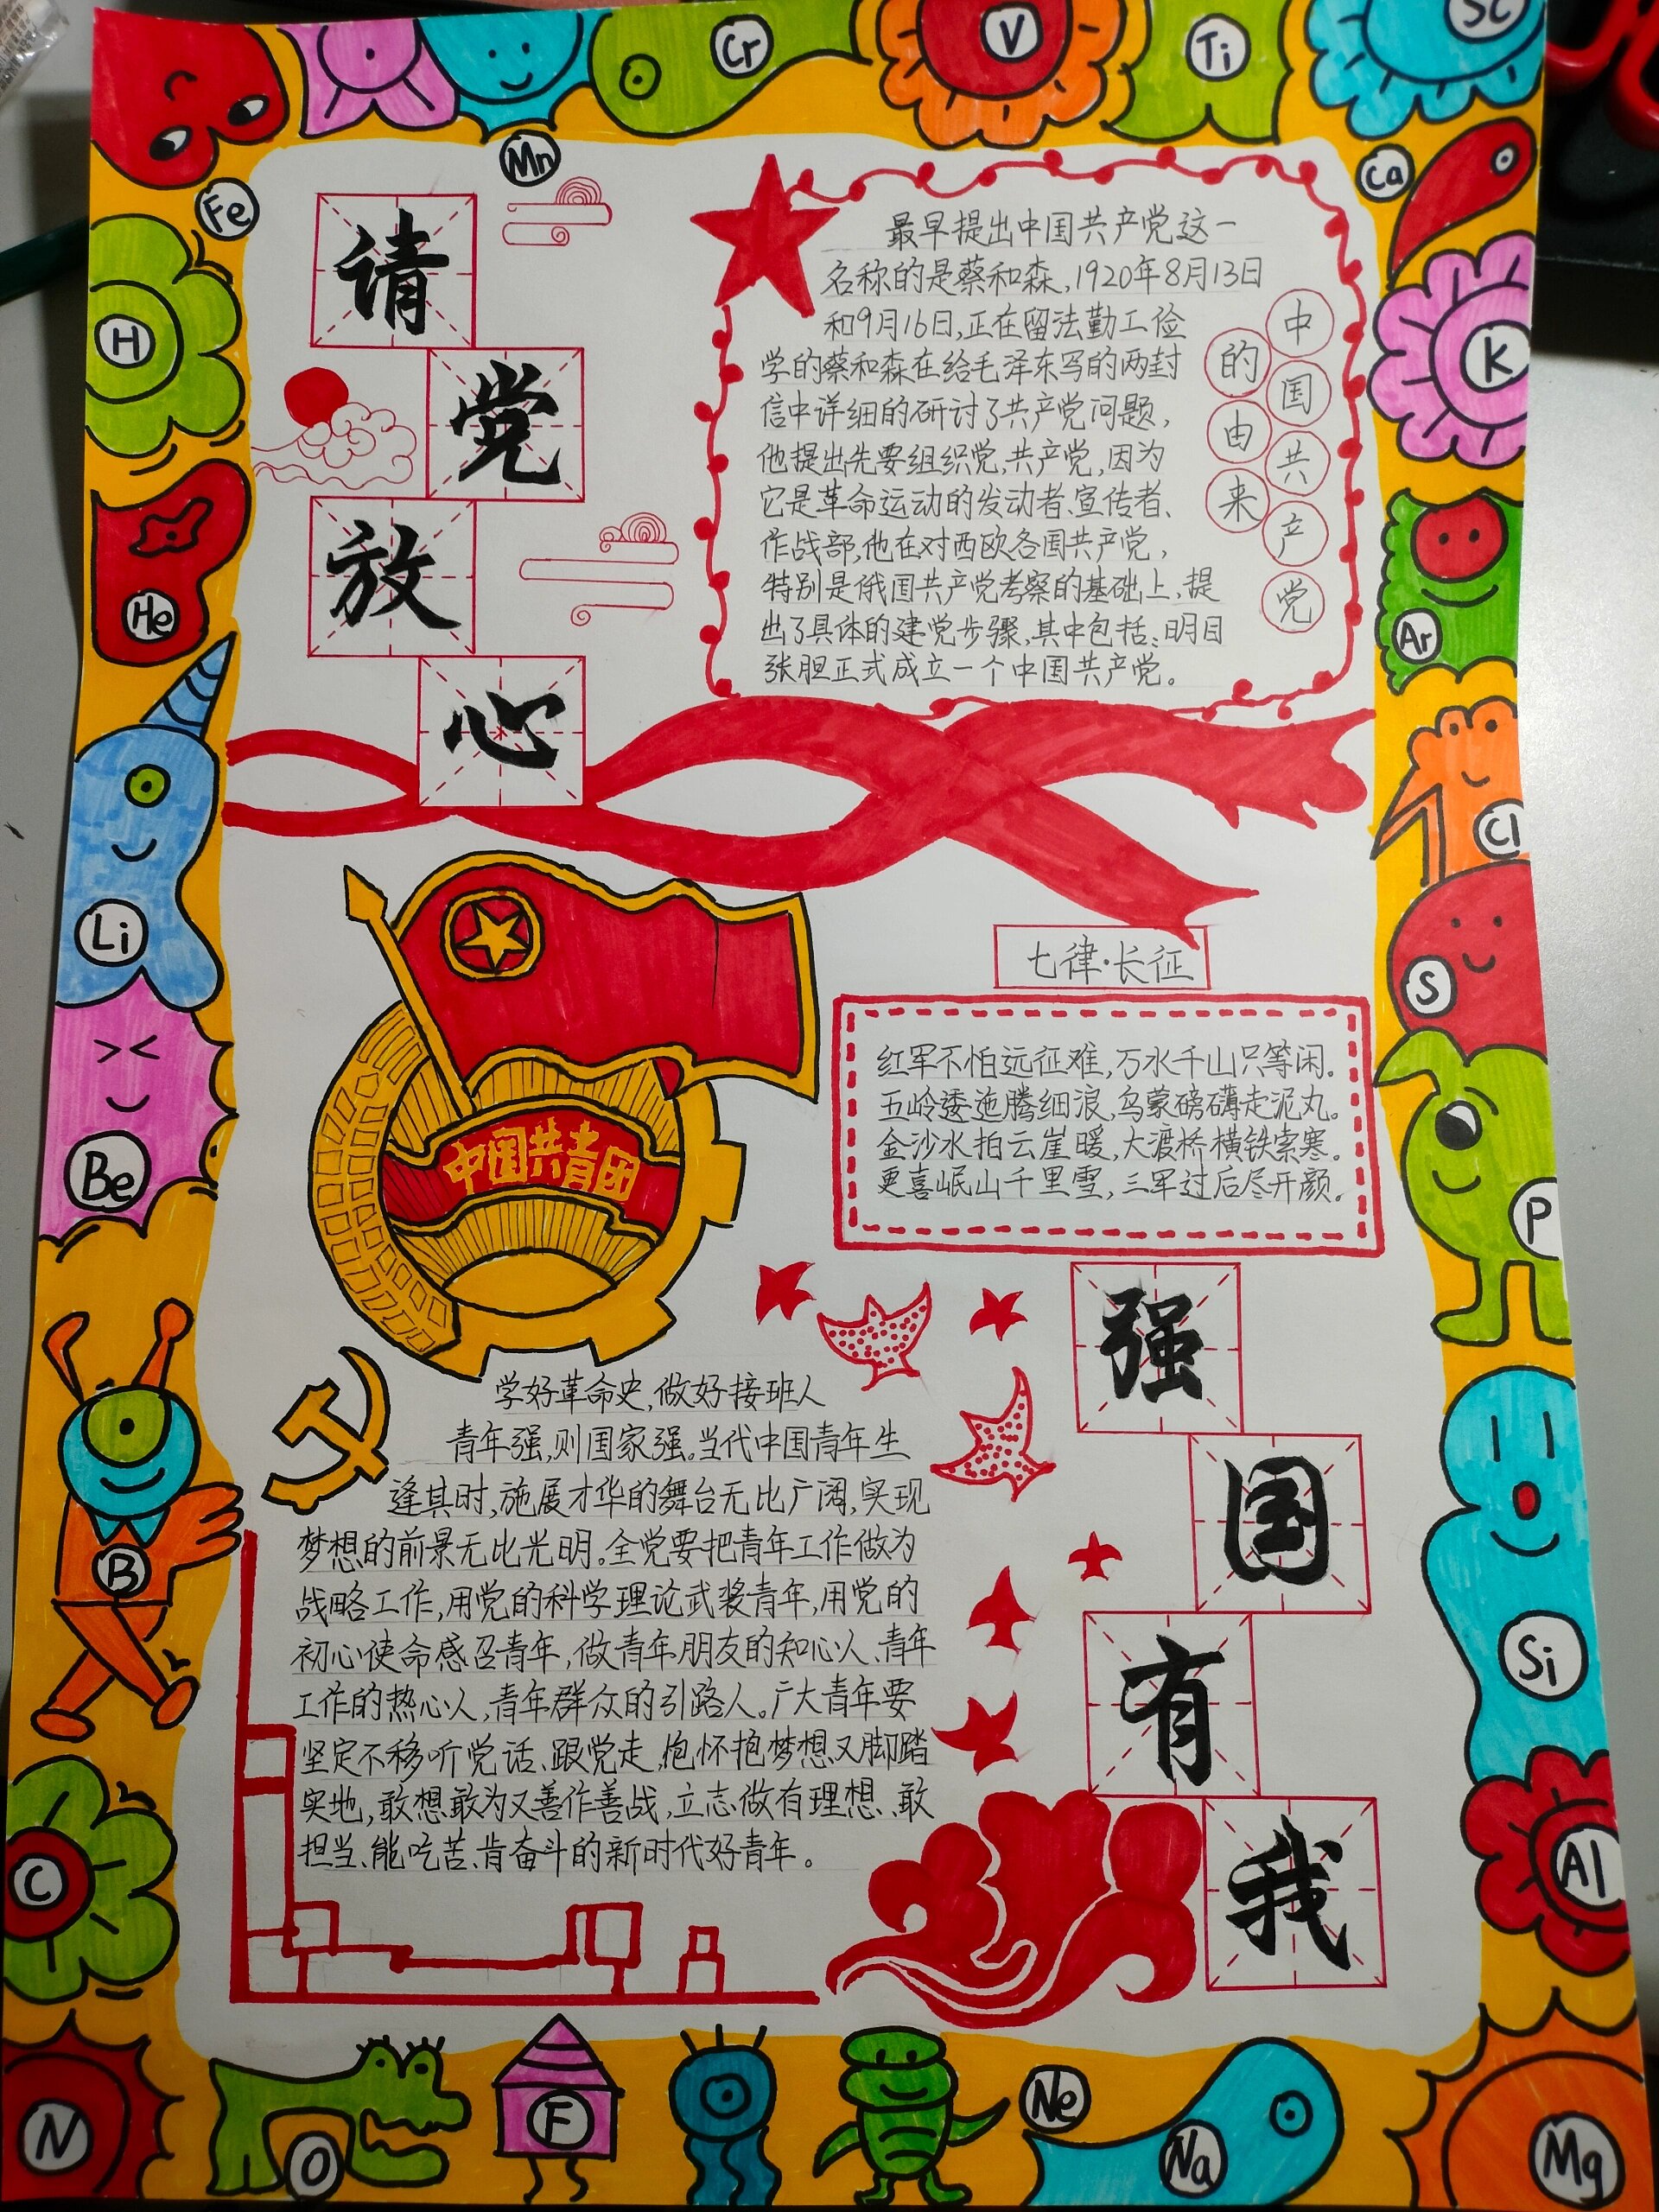 Cr
V
Ti
Sc
Mn
Fe
Ca
请
党
放
心
最早提出中国共产党这一
名称的是蔡和森,1920年8月13日
和9月16日,正在留法勤工俭
学的蔡和森在给毛泽东写的两封
信中详细的研讨了共产党问题,
他提出先要组织党,共产党,因为
它是革命运动的发动者、宣传者、
作战部,他在对西欧各国共产党,
特别是俄国共产党考察的基础上,提
出了具体的建党步骤,其中包括:明目
张胆正式成立一个中国共产党。
中国共产党
的由来
H
He
Li
Be
B
C
N
K
Ar
Cl
S
P
Si
Al
Mg
七律·长征
红军不怕远征难,万水千山只等闲。
五岭逶迤腾细浪,乌蒙磅礴走泥丸。
金沙水拍云崖暖,大渡桥横铁索寒。
更喜岷山千里雪,三军过后尽开颜。
中国共青团
强
国
有
我
学好革命史,做好接班人
青年强,则国家强。当代中国青年生
逢其时,施展才华的舞台无比广阔,实现
梦想的前景无比光明。全党要把青年工作做为
战略工作,用党的科学理论武装青年,用党的
初心使命感召青年,做青年朋友的知心人、青年
工作的热心人,青年群众的引路人。广大青年要
坚定不移听党话、跟党走,怀抱梦想又脚踏
实地,敢想敢为又善作善战,立志做有理想、敢
担当、能吃苦、肯奋斗的新时代好青年。
O
F
Ne
Na